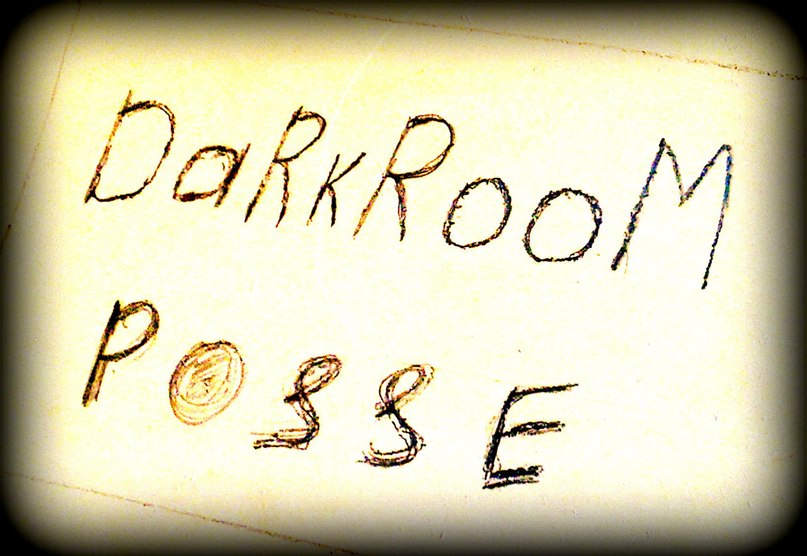 DaRKROOM
POSSE